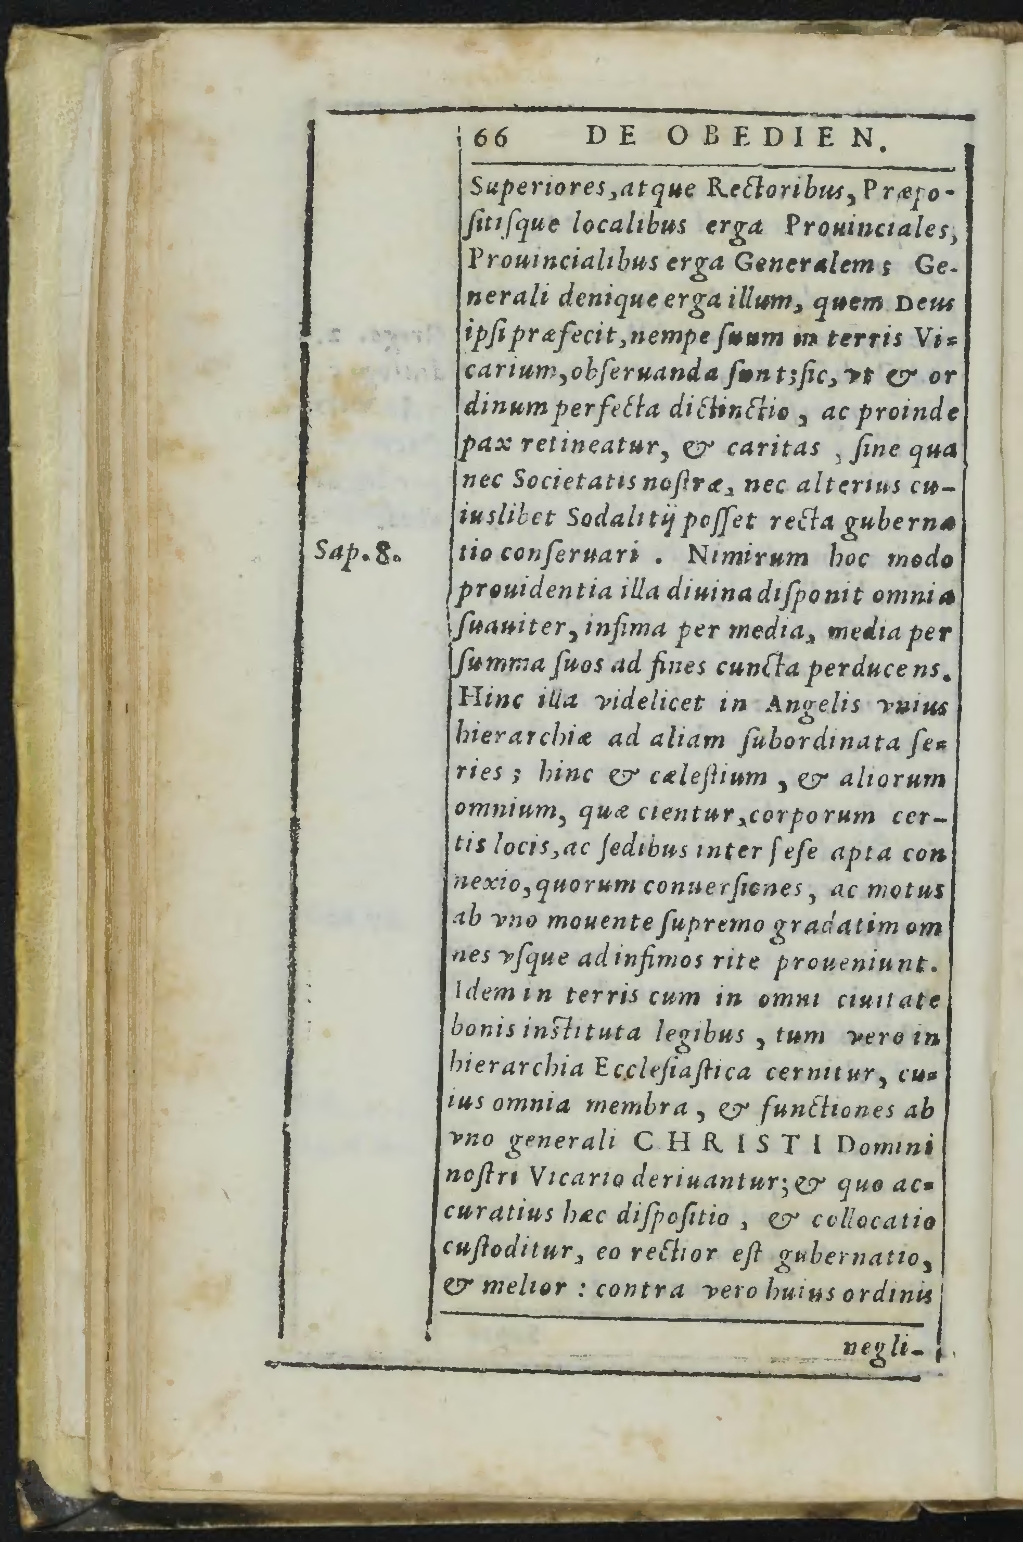 66 DE OBEDIEN.
Superiores, atque Rectoribus, Præpo-
sitisque localibus erga Prouinciales,
Prouincialibus erga Generalem; Ge-
nerali denique erga illum, quem Deus
ipsi præfecit, nempe suum in terris Vi-
carium, obseruanda sunt; sic, vt & or
dinum perfecta dictinctio, ac proinde
pax retineatur, & caritas, sine qua
nec Societatis nostræ, nec alterius cu-
iuslibet Sodalitij posset recta guberna
Sap. 8.
tio conseruari. Nimirum hoc modo
prouidentia illa diuina disponit omnia
suauiter, infima per media, media per
summa suos ad fines cuncta perducens.
Hinc illa videlicet in Angelis vnius
hierarchiæ ad aliam subordinata se-
ries; hinc & cælestium, & aliorum
omnium, quæ cientur, corporum cer-
tis locis, ac sedibus inter sese apta con
nexio, quorum conuersiones, ac motus
ab vno mouente supremo gradatim om
nes vsque ad infimos rite proueniunt.
Idem in terris cum in omni ciuitate
bonis instituta legibus, tum vero in
hierarchia Ecclesiastica cernitur, cu-
ius omnia membra, & functiones ab
vno generali CHRISTI Domini
nostri Vicario deriuantur; & quo ac-
curatius hæc dispositio, & collocatio
custoditur, eo rectior est gubernatio,
& melior: contra vero huius ordinis
negli-